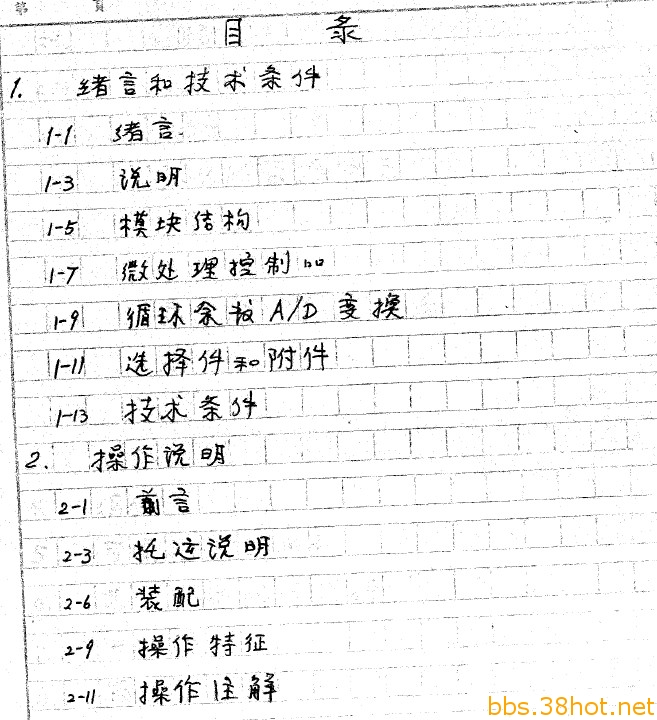 第 頁
目 录
1. 绪言和技术条件
1-1 绪言
1-3 说明
1-5 模块结构
1-7 微处理控制器
1-9 循环余数 A/D 变换
1-11 选择件和附件
1-13 技术条件
2. 操作说明
2-1 前言
2-3 托运说明
2-6 装配
2-9 操作特征
2-11 操作注解
bbs.38hot.net